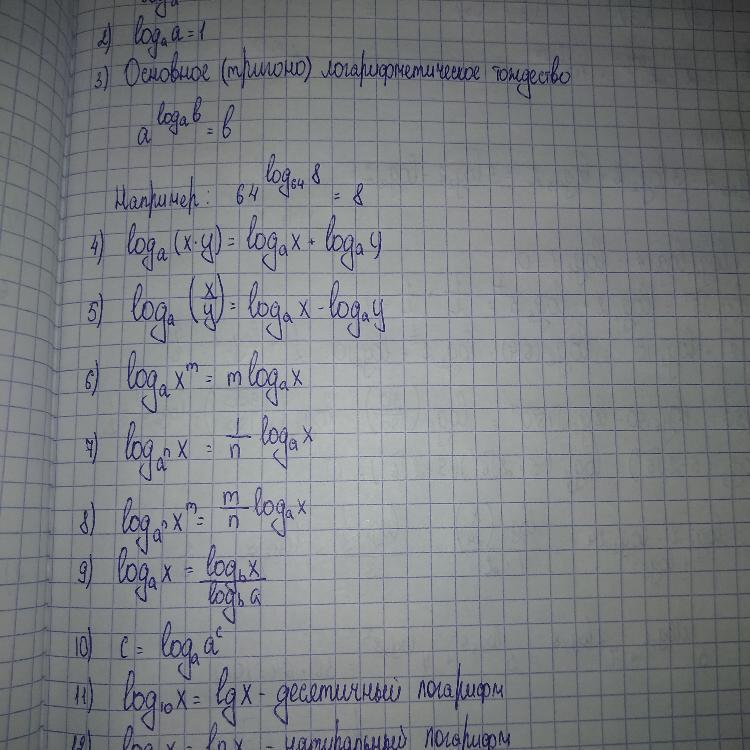 2) logₐa = 1
3) Основное (тригоно) логарифметическое тождество
a^(logₐb) = b
Например: 64^(log₆₄8) = 8
4) logₐ(x·y) = logₐx + logₐy
5) logₐ(x/y) = logₐx - logₐy
6) logₐx^m = m logₐx
7) log_(a^n) x = 1/n logₐx
8) log_(a^n) x^m = m/n logₐx
9) logₐx = log_b x / log_b a
10) c = logₐa^c
11) log₁₀x = lg x - десетичный логарифм
12) x = ln x - натуральный логарифм